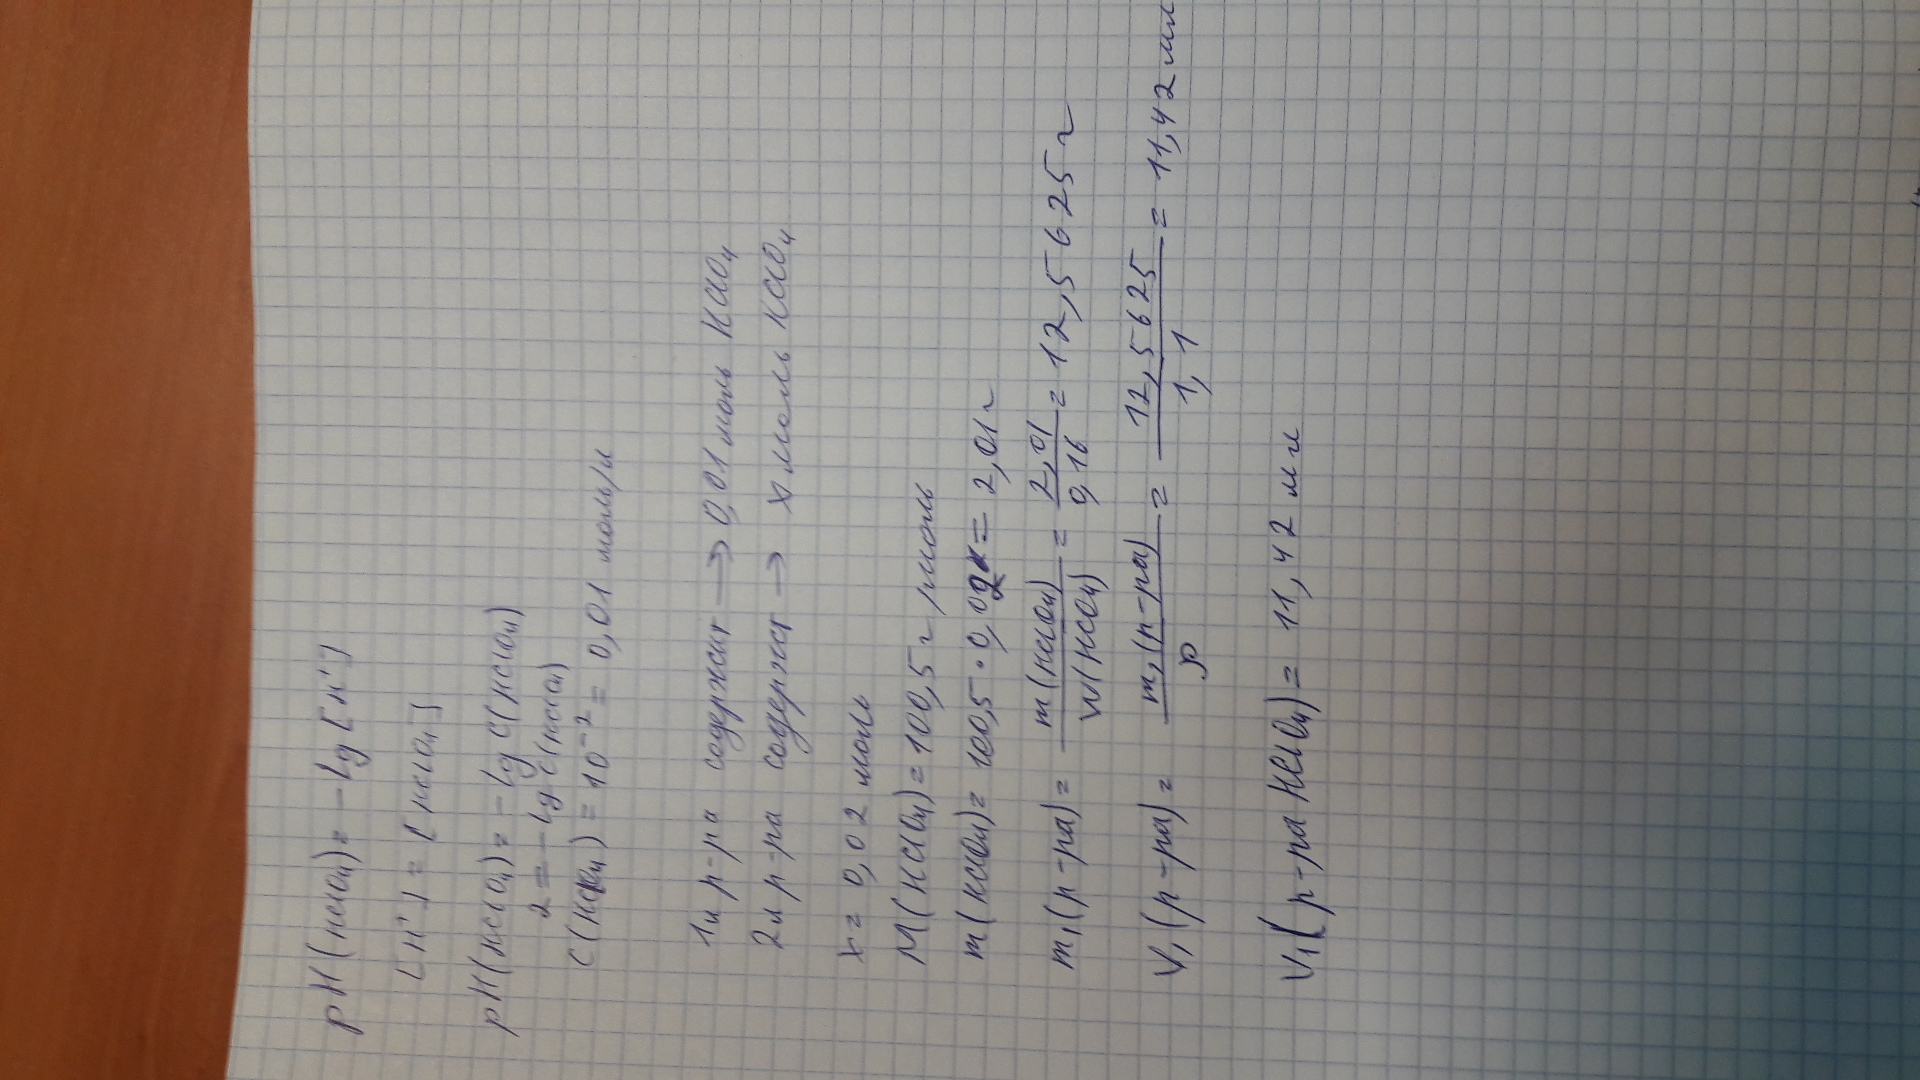 pH(HClO₄) = - lg [H⁺]
[H⁺] = [HClO₄]
pH(HClO₄) = - lg C(HClO₄)
2 = - lg C(HClO₄)
C(HClO₄) = 10⁻² = 0,01 моль/л
1л р-ра содержит → 0,01 моль HClO₄
2л р-ра содержит → x моль HClO₄
x = 0,02 моль
M(HClO₄) = 100,5 г/моль
m(HClO₄) = 100,5 · 0,02 = 2,01 г
m₁(р-ра) = m(HClO₄) / W(HClO₄) = 2,01 / 0,16 = 12,5625 г
V₁(р-ра) = m₁(р-ра) / ρ = 12,5625 / 1,1 = 11,42 мл
V₁(р-ра HClO₄) = 11,42 мл